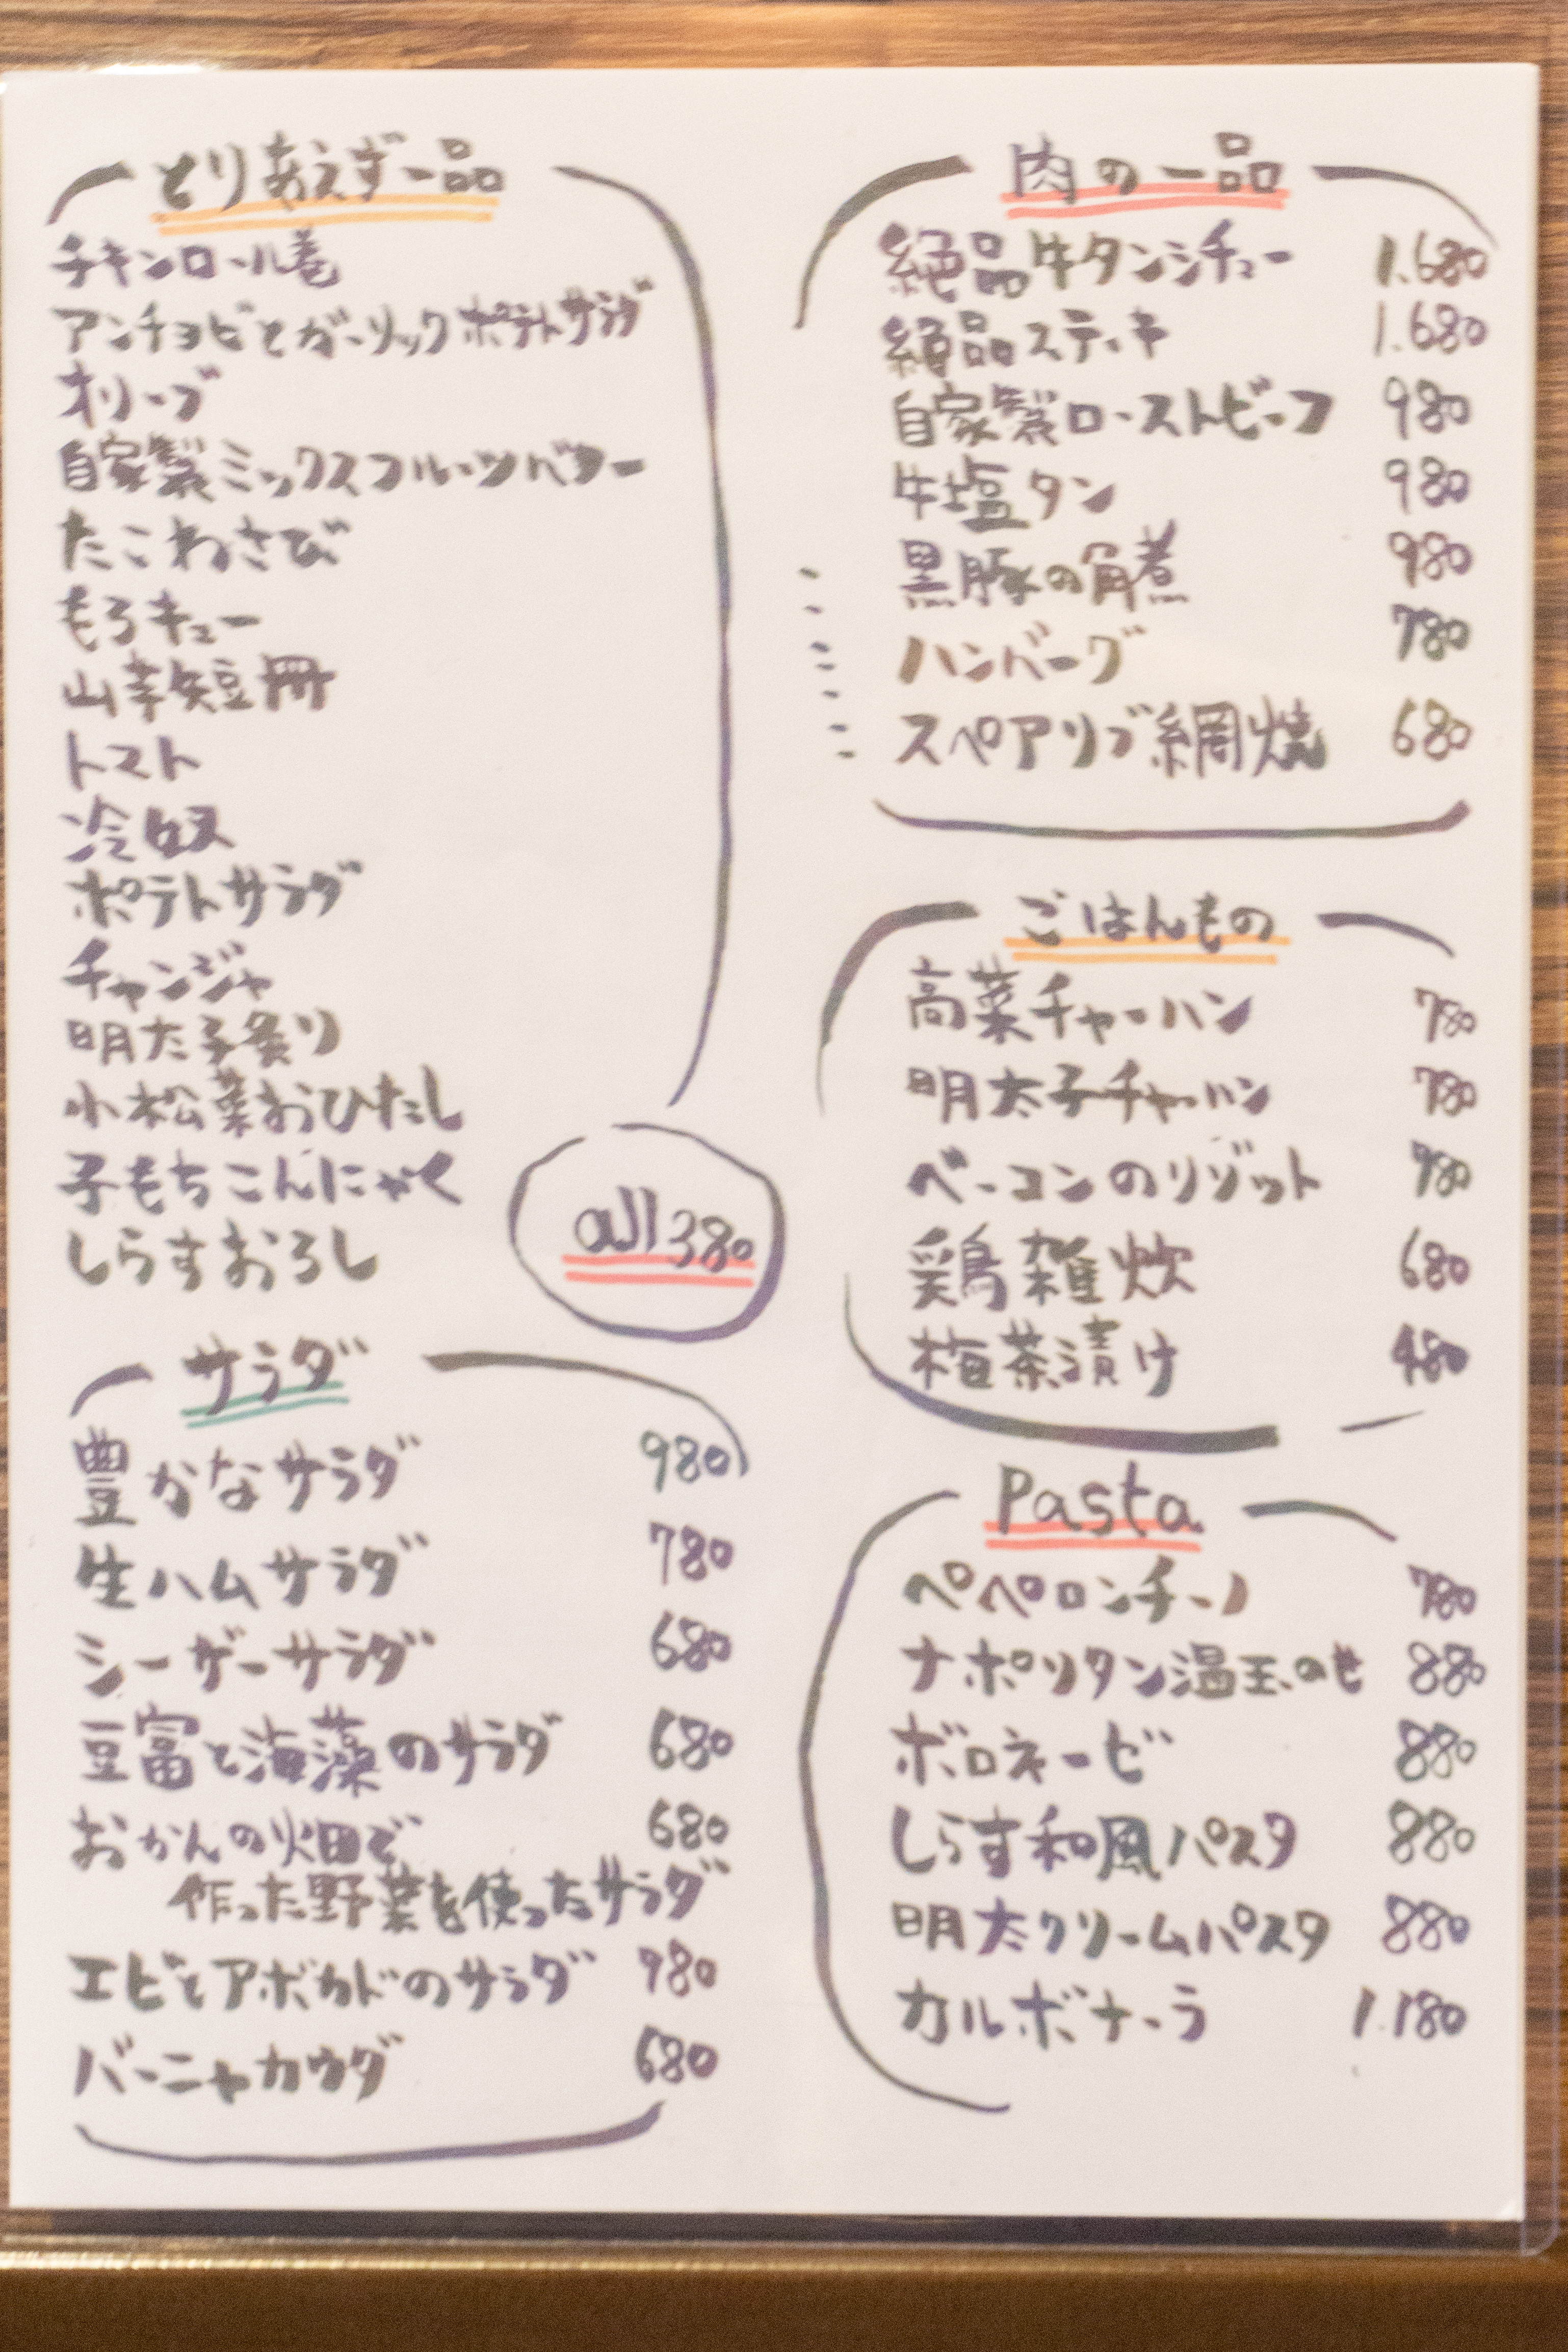 とりあえず一品
チキンロール巻
アンチョビとガーリックポテトサラダ
オリーブ
自家製ミックスフルーツバター
たこわさび
もろキュー
山芋短冊
トマト
冷奴
ポテトサラダ
チャンジャ
明太子炙り
小松菜おひたし
子もちこんにゃく
しらすおろし
all 380
サラダ
豊かなサラダ 980
生ハムサラダ 780
シーザーサラダ 680
豆富と海藻のサラダ 680
おかんの畑で 680
作った野菜を使ったサラダ
エビとアボカドのサラダ 980
バーニャカウダ 680
肉の一品
絶品牛タンシチュー 1.680
絶品ステーキ 1.680
自家製ローストビーフ 980
牛塩タン 980
黒豚の角煮 980
ハンバーグ 780
スペアリブ網焼 680
ごはんもの
高菜チャーハン 780
明太子チャーハン 780
ベーコンのリゾット 780
鶏雑炊 680
梅茶漬け 480
Pasta
ペペロンチーノ 780
ナポリタン温玉のせ 880
ボロネーゼ 880
しらす和風パスタ 880
明太クリームパスタ 880
カルボナーラ 1.180